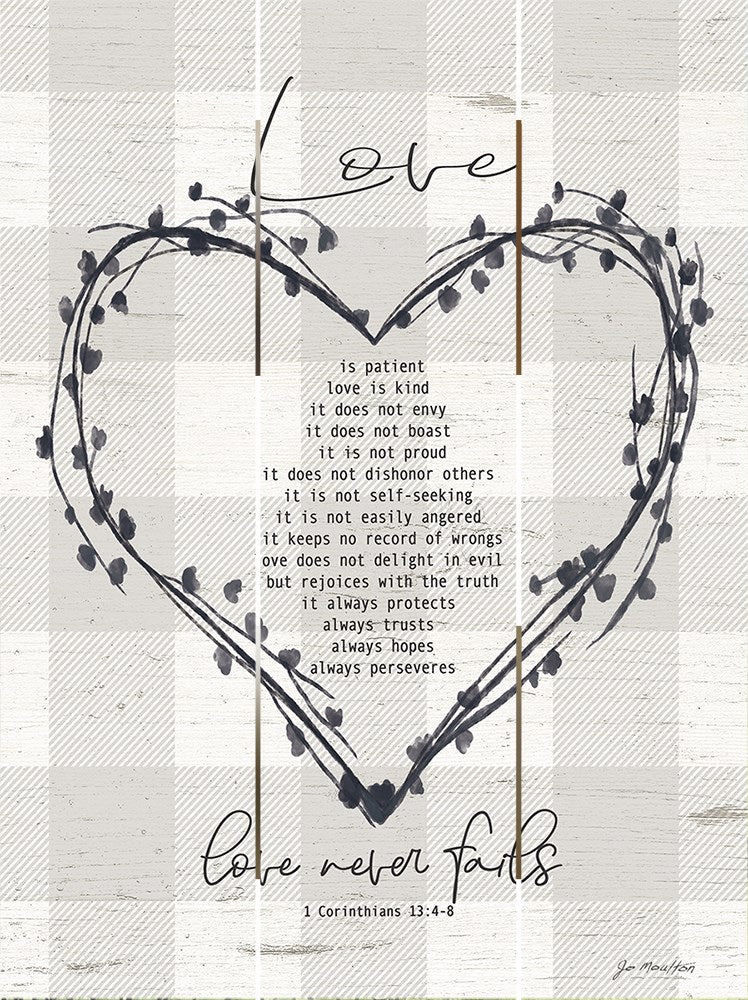 Love
is patient
love is kind
it does not envy
it does not boast
it is not proud
it does not dishonor others
it is not self-seeking
it is not easily angered
it keeps no record of wrongs
ove does not delight in evil
but rejoices with the truth
it always protects
always trusts
always hopes
always perseveres
love never fails
1 Corinthians 13:4-8
Jo Moulton